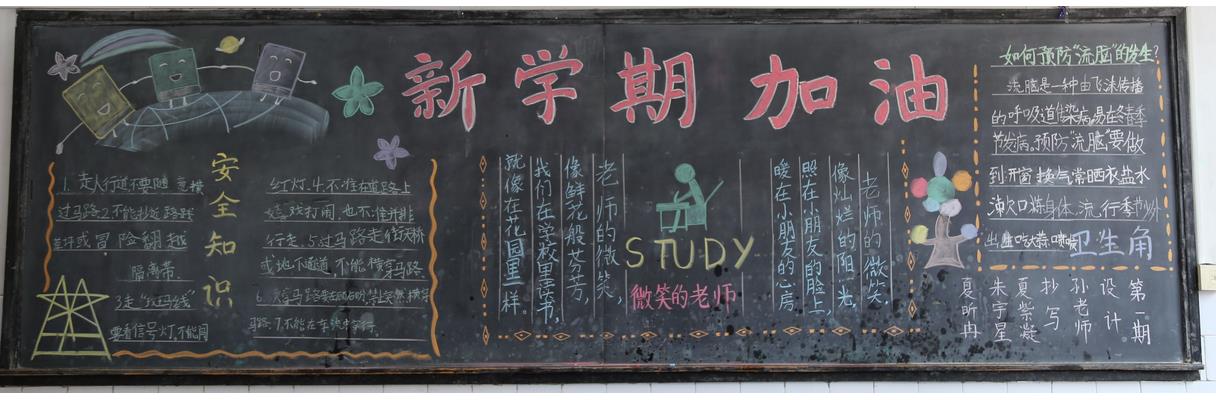 新学期加油
安全知识
1.走人行道不要随意横
过马路2.不能抄近路跨
或冒险翻越
隔离带.
3走"斑马线"
要看信号灯,不能闯
红灯.4.不准在道路上
嬉戏打闹,也不准并排
行走.5过马路走过街天桥
或地下通道 不能横穿马路
6.
马路.7.不能在车
老师的微笑,
像鲜花般芬芳,
我们在学校里读书,
就像在花园里一样。
STUDY
微笑的老师
老师的微笑.
像灿烂的阳光,
照在小朋友的脸上,
暖在小朋友的心房
如何预防"流脑"的发生?
流脑是一种由飞沫传播
的呼吸道传染病易在冬春季
节发病。预防"流脑"要做
到:开窗换气常晒衣盐水
漱口炼身体.流行季节少外
出生吃大蒜
卫生角
第一期
设计
孙老师
抄写
夏紫凝
朱宇星
夏昕冉